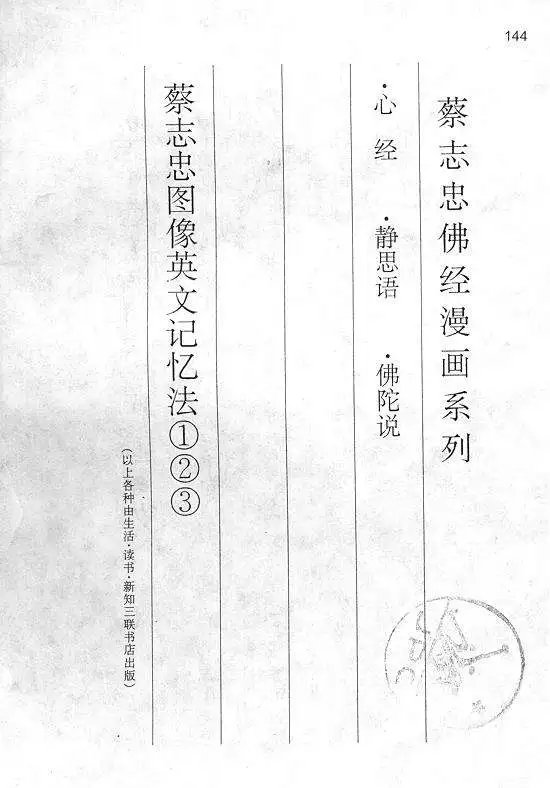 144
蔡志忠佛经漫画系列
·心经 ·静思语 ·佛陀说
蔡志忠图像英文记忆法①②③
(以上各种由生活·读书·新知三联书店出版)